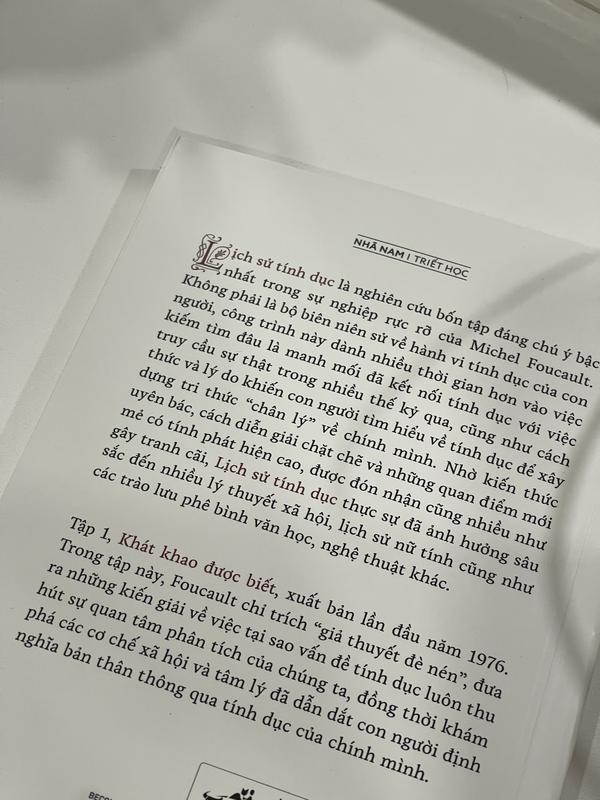 NHÃ NAM | TRIẾT HỌC
Lịch sử tính dục là nghiên cứu bốn tập đáng chú ý bậc
nhất trong sự nghiệp rực rỡ của Michel Foucault.
Không phải là bộ biên niên sử về hành vi tính dục của con
người, công trình này dành nhiều thời gian hơn vào việc
kiếm tìm đâu là manh mối đã kết nối tính dục với việc
truy cầu sự thật trong nhiều thế kỷ qua, cũng như cách
thức và lý do khiến con người tìm hiểu về tính dục để xây
dựng tri thức “chân lý” về chính mình. Nhờ kiến thức
uyên bác, cách diễn giải chặt chẽ và những quan điểm mới
mẻ có tính phát hiện cao, được đón nhận cũng nhiều như
gây tranh cãi, Lịch sử tính dục thực sự đã ảnh hưởng sâu
sắc đến nhiều lý thuyết xã hội, lịch sử nữ tính cũng như
các trào lưu phê bình văn học, nghệ thuật khác.
Tập 1, Khát khao được biết, xuất bản lần đầu năm 1976.
Trong tập này, Foucault chỉ trích “giả thuyết đè nén”, đưa
ra những kiến giải về việc tại sao vấn đề tính dục luôn thu
hút sự quan tâm phân tích của chúng ta, đồng thời khám
phá các cơ chế xã hội và tâm lý đã dẫn dắt con người định
nghĩa bản thân thông qua tính dục của chính mình.